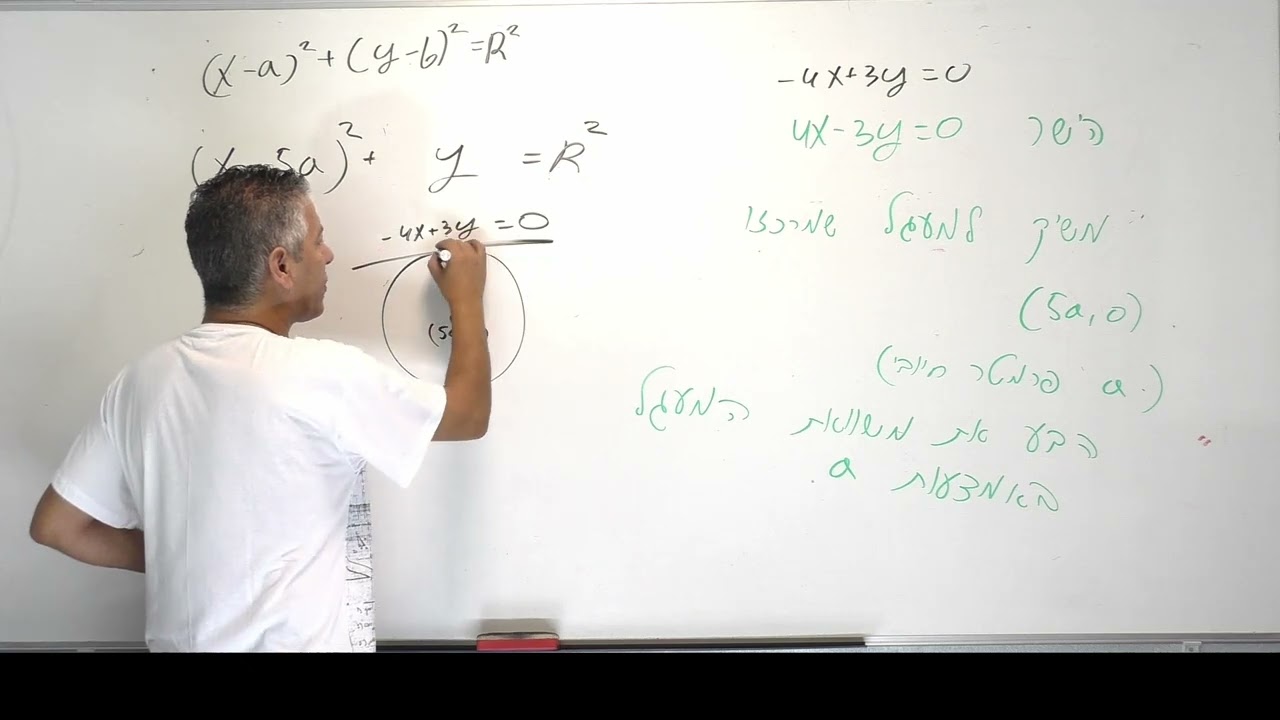 (x-a)² + (y-b)² = R²
5a)² + y = R²
-4x+3y=0
(5
-4x+3y=0
הישר 4x-3y=0
משיק למעגל שמרכזו
(5a,0)
(a פרמטר חיובי)
הבע את משוואת המעגל
באמצעות a.